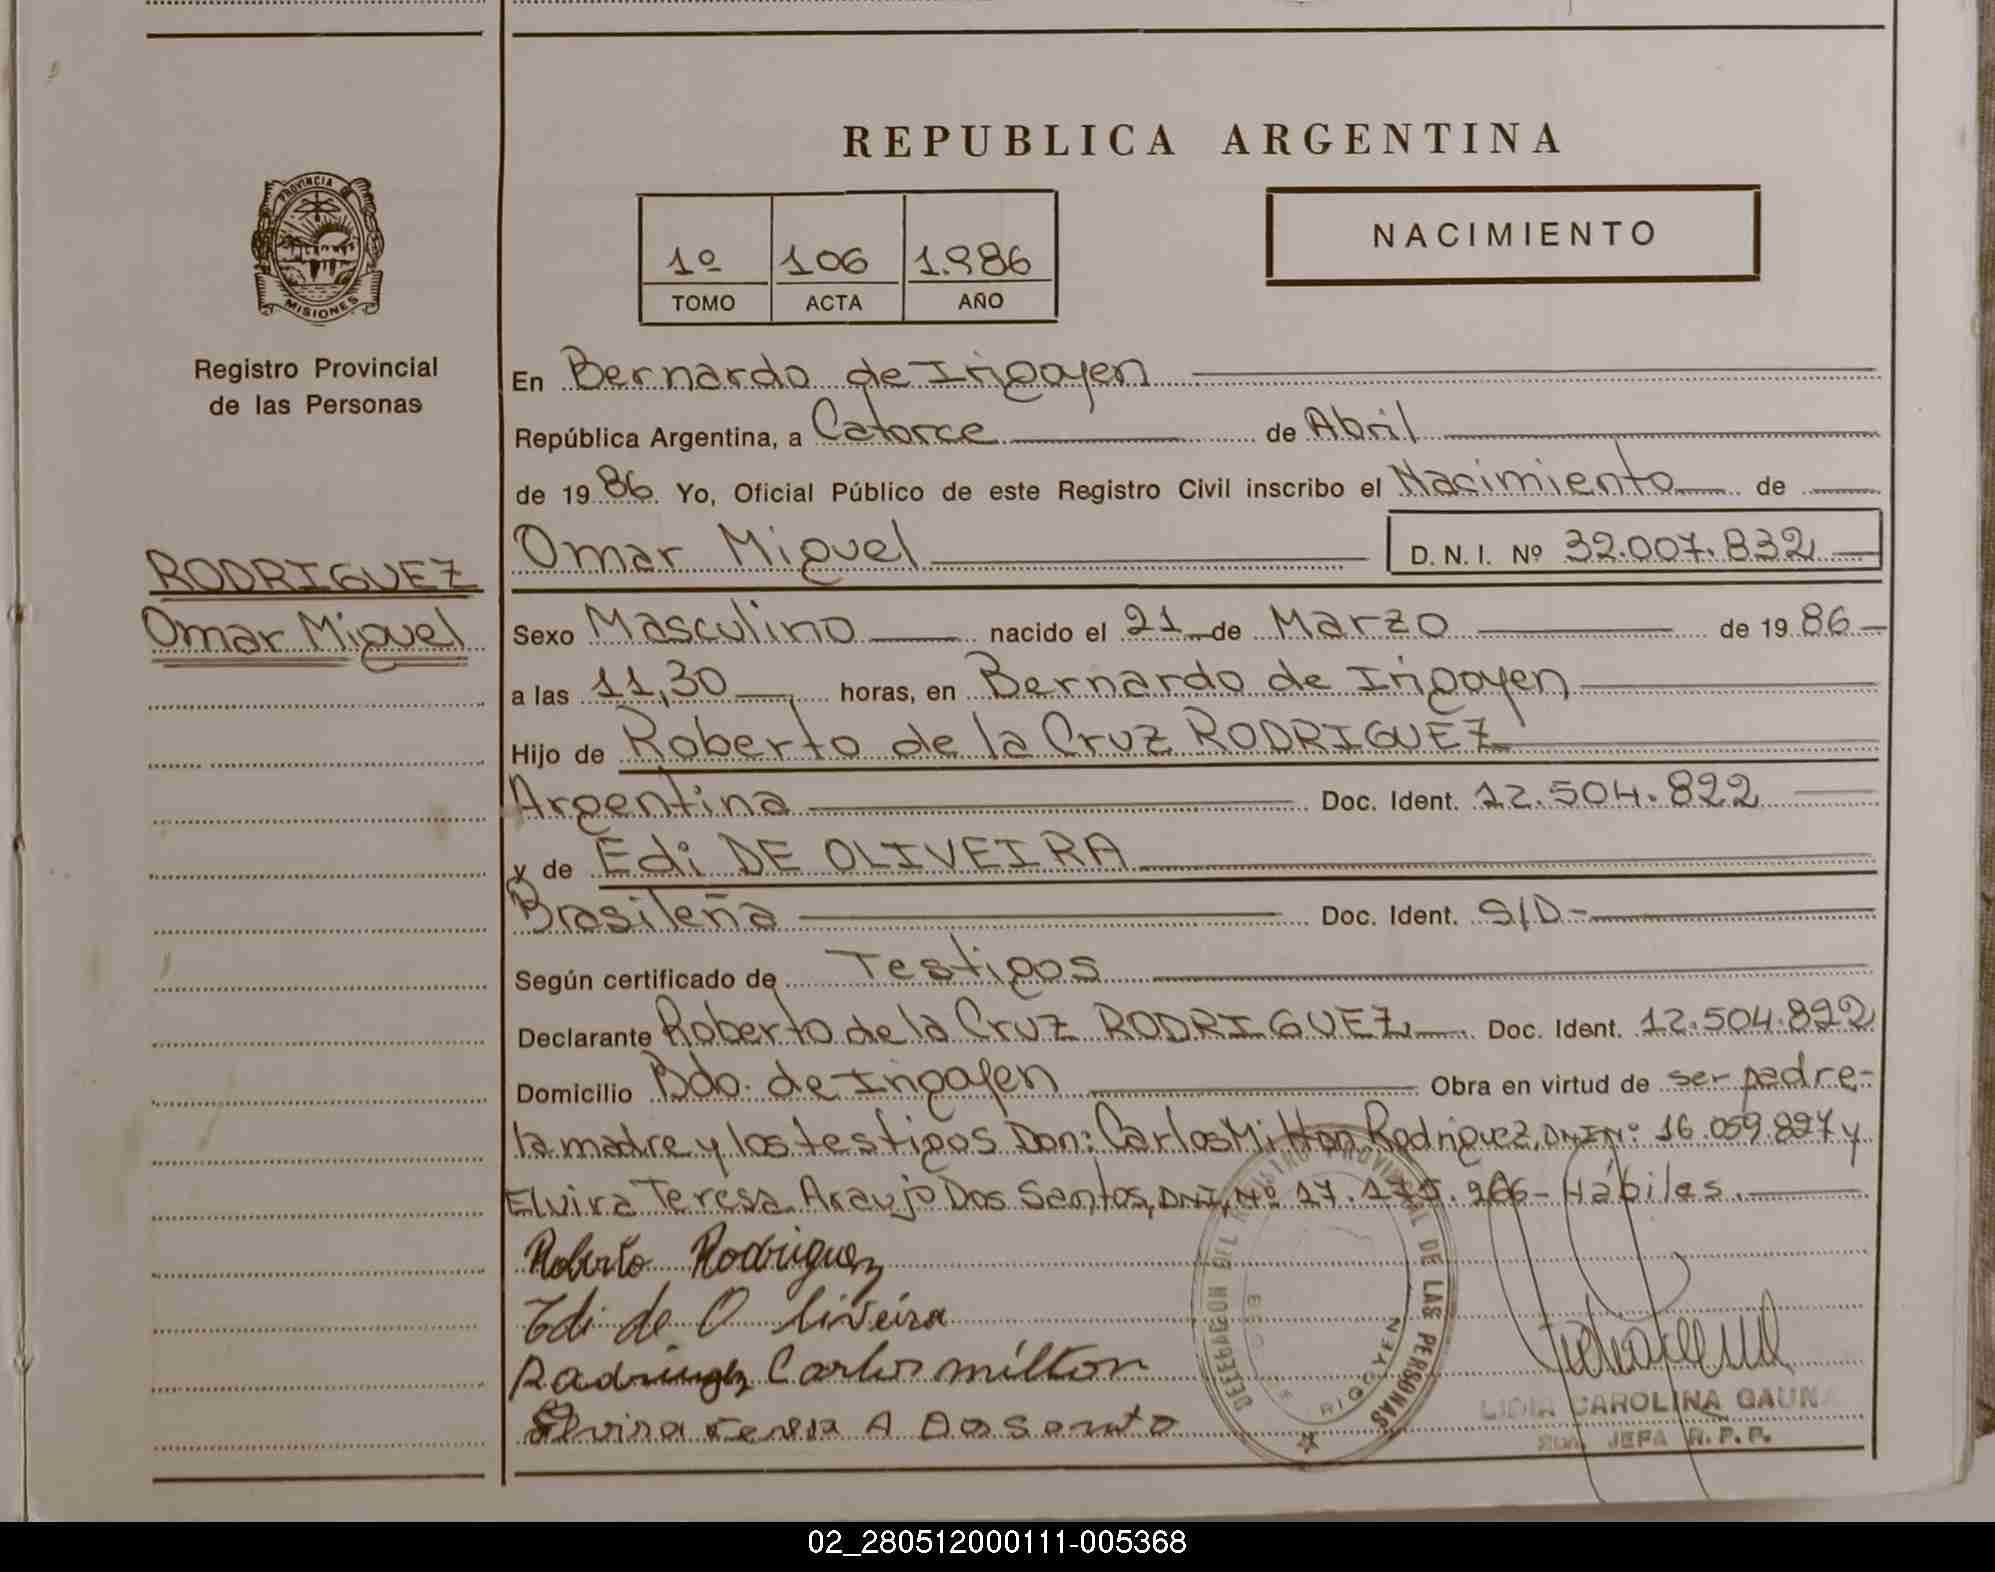 REPUBLICA ARGENTINA
PROVINCIA DE
MISIONES
Registro Provincial
de las Personas
1º 106 1.986
TOMO ACTA AÑO
NACIMIENTO
En Bernardo de Irigoyen
República Argentina, a Catorce de Abril
de 19 86 Yo, Oficial Público de este Registro Civil inscribo el Nacimiento de
Omar Miguel D. N. I. Nº 32.007.832
RODRIGUEZ
Omar Miguel
Sexo Masculino nacido el 21 de Marzo de 19 86
a las 11,30 horas, en Bernardo de Irigoyen
Hijo de Roberto de la Cruz RODRIGUEZ
Argentina Doc. Ident. 12.504.822
y de Edi DE OLIVEIRA
Brasileña Doc. Ident. S/D-
Según certificado de Testigos
Declarante Roberto de la Cruz RODRIGUEZ Doc. Ident. 12.504.822
Domicilio Bdo. de Irigoyen Obra en virtud de ser padre-
la madre y los testigos Don: Carlos Milton Rodriguez, DNI Nº 16.059.827 y
Elvira Teresa Araujo Dos Santos, DNI, Nº 17.175.266- Hábiles.
Roberto Rodriguez
Edi de Oliveira
Rodriguez Carlos milton
Elvira Teresa A Dos Santo
DELEGACION DEL REGISTRO PROVINCIAL DE LAS PERSONAS
BDO IRIGOYEN
LIDIA CAROLINA GAUNA
JEFA R.P.P.
02_280512000111-005368